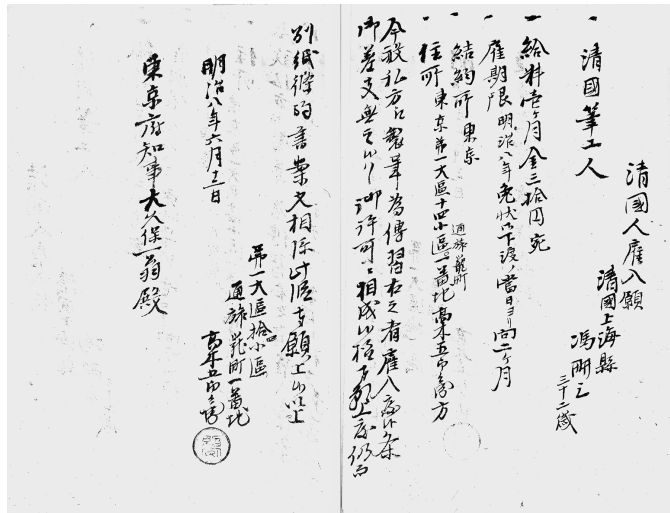 清國人雇入願
清國上海縣
馮耕三
三十二歳
一 清國筆工人
一 給料壱ヶ月金三拾円宛
一 雇期限明治八年免状御下渡ノ當日ヨリ向二ヶ月
一 結約所東京
一 住所東京第一大區十四小區通旅籠町一番地高木五郎兵衛方
今般私方ニ製筆為傳習右之者雇入度候条
御差支無之候ハヽ御許可ニ相成候様奉願上度仍而
別紙條約書案文相添此段奉願上候以上
明治八年六月三日
第一大區拾四小區
通旅籠町一番地
高木五郎兵衛
東京府知事大久保一翁殿